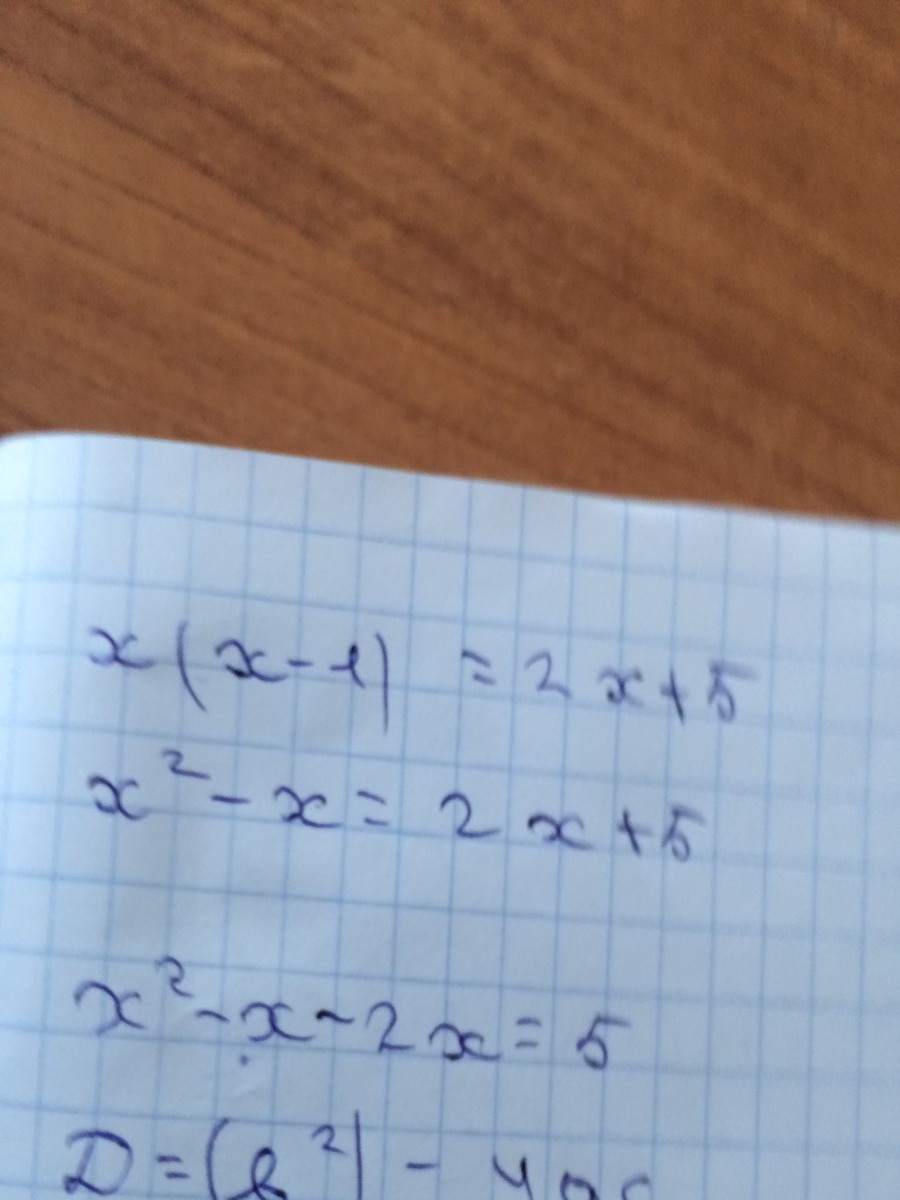 x(x-1) = 2x+5
x² - x = 2x+5
x² - x - 2x = 5
D = (b²) - 4ac